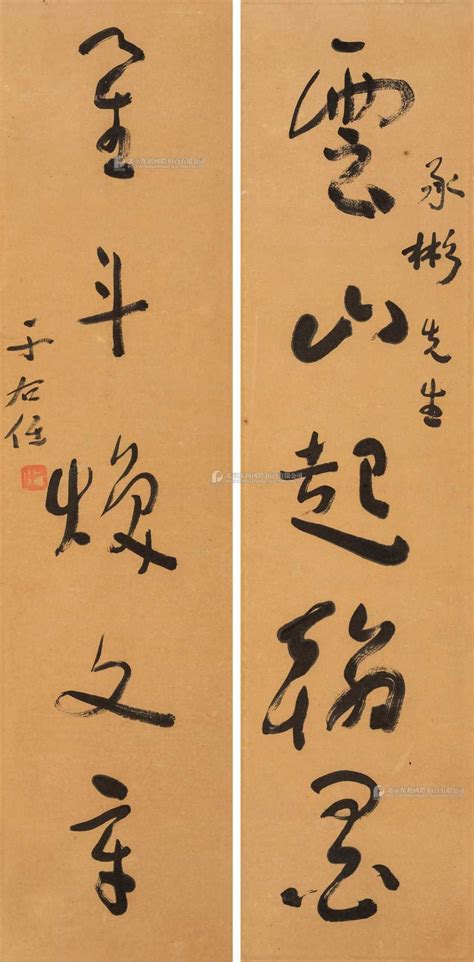 承彬先生
雲山起翰墨
星斗煥文章
于右任